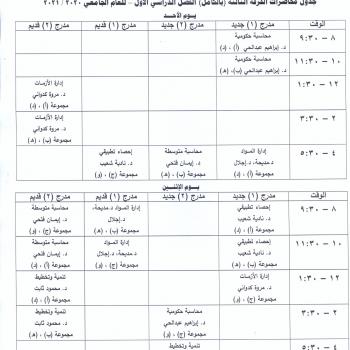 جدول محاضرات الفرقة الثالثة (بالكامل) الفصل الدراسي الأول – للعام الجامعي ٢٠٢٠ / ٢٠٢١
يــوم الأحــد
الوقت مدرج (١) جديد مدرج (٢) جديد مدرج (١) قديم مدرج (٢) قديم
٨ – ٩:٣٠ محاسبة حكومية
د. إبراهيم عبدالحي
مجموعة (أ) ، (د)
١٠ – ١١:٣٠ محاسبة حكومية
د. إبراهيم عبدالحي
مجموعة (ب) ، (هـ)
١٢ – ١:٣٠ إدارة الأزمات
د. مروة كدواني
مجموعة (أ) ، (د)
٢ – ٣:٣٠ إدارة الأزمات
د. مروة كدواني
مجموعة (ب) ، (هـ)
٤ – ٥:٣٠ إدارة المواد
د. مديحة، د. إجلال
مجموعة (أ) ، (د)
محاسبة متوسطة
د. إيمان فتحي
مجموعة (ب) ، (هـ)
إحصاء تطبيقي
د. نادية شعيب
مجموعة (ج) ، (و)
يــوم الإثنــين
الوقت مدرج (١) جديد مدرج (٢) جديد مدرج (١) قديم مدرج (٢) قديم
٨ – ٩:٣٠ إحصاء تطبيقي
د. نادية شعيب
مجموعة (أ) ، (د)
إدارة المواد د. مديحة،
د. إجلال
مجموعة (ب) ، (هـ)
محاسبة متوسطة
د. إيمان فتحي
مجموعة (ج) ، (و)
١٠ – ١١:٣٠ إحصاء تطبيقي
د. نادية شعيب
مجموعة (ب) ، (هـ)
إدارة المواد
د. مديحة، د. إجلال
مجموعة (ج) ، (و)
محاسبة متوسطة
د. إيمان فتحي
مجموعة (أ) ، (د)
١٢ – ١:٣٠ إدارة الأزمات
د. مروة كدواني
مجموعة (ج) ، (و)
تنمية وتخطيط
د. محمود ثابت
مجموعة (أ) ، (د)
٢ – ٣:٣٠ محاسبة حكومية
د. إبراهيم عبدالحي
مجموعة (ج) ، (و)
تنمية وتخطيط
د. محمود ثابت
مجموعة (ب) ، (هـ)
٤ – ٥:٣٠ تنمية وتخطيط